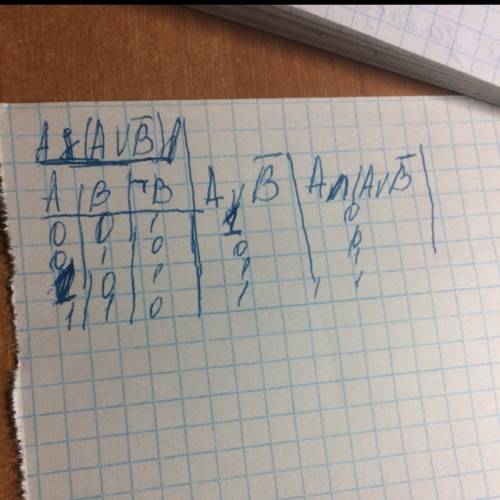 A & (A ∨ B̅)
A B ¬B A ∨ B̅ A ∧ (A ∨ B̅
0 0 1 1 0
0 1 0 0 0
1 0 1 1 1
1 1 0 1 1